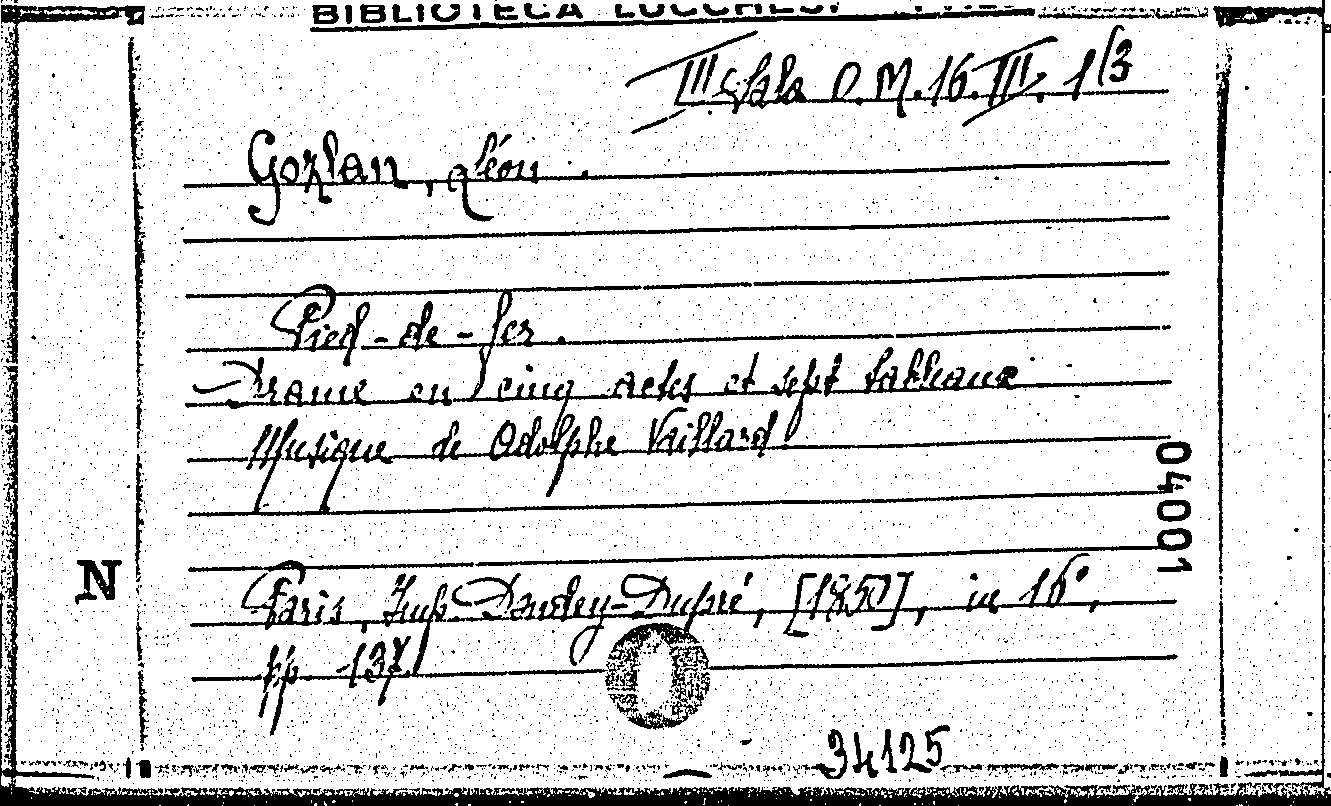 BIBLIOTECA LUCCHESI
III Sala D. M. 16. III. 1/3
Gozlan, Léon.
Pied-de-fer.
Drame en cinq actes et sept tableaux
Musique de Adolphe Vaillard
04001
N
Paris, Imp. Dondey-Dupré, [1850], in 16°,
pp. 137.
34125